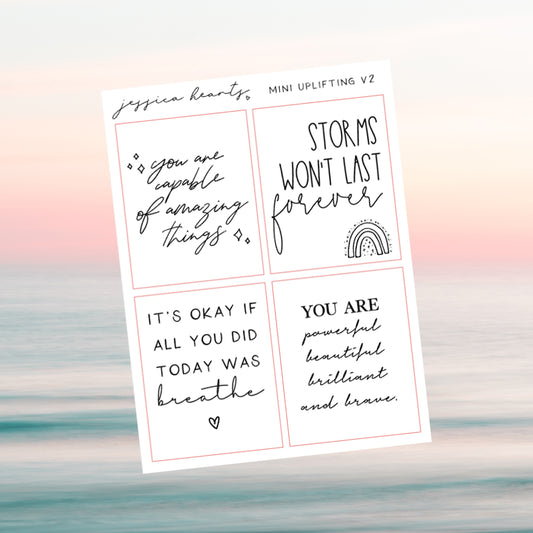 jessica hearts
MINI UPLIFTING V2
you are
capable
of amazing
things
STORMS
WON'T LAST
forever
IT'S OKAY IF
ALL YOU DID
TODAY WAS
breathe
YOU ARE
powerful
beautiful
brilliant
and brave.